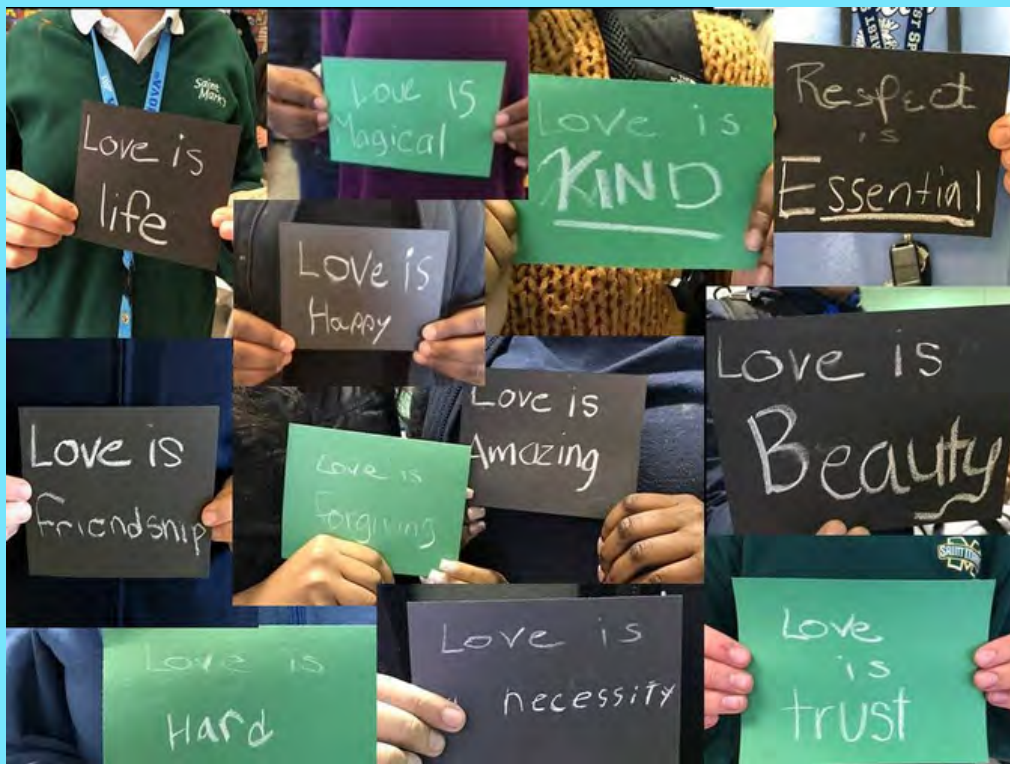 Saint
Mark's
Love is
life
Love is
Magical
Love is
KIND
Respect
is
Essential
Love is
Happy
Love is
Beauty
Love is
Friendship
Love is
Forgiving
Love is
Amazing
Love is
Hard
Love is
necessity
SAINT
Love
is
trust